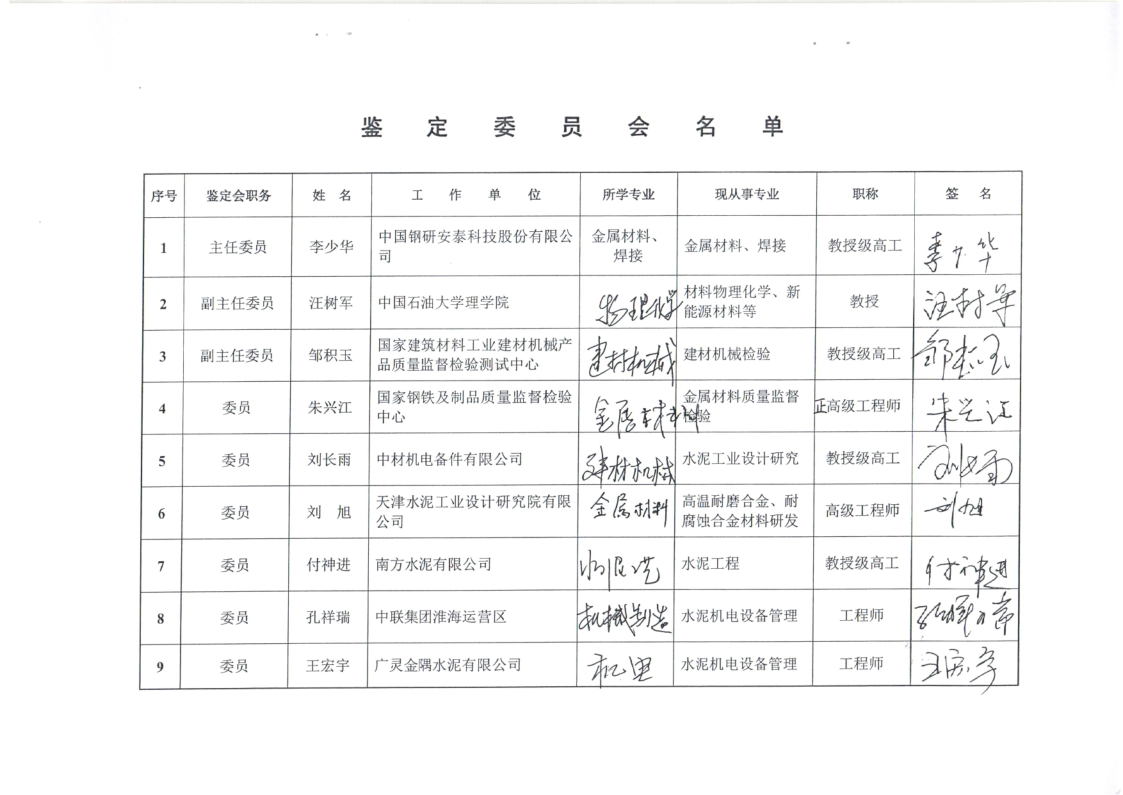 鉴 定 委 员 会 名 单
序号 鉴定会职务 姓 名 工 作 单 位 所学专业 现从事专业 职称 签 名
1 主任委员 李少华 中国钢研安泰科技股份有限公司 金属材料、焊接 金属材料、焊接 教授级高工 李少华
2 副主任委员 汪树军 中国石油大学理学院 物理化学 材料物理化学、新能源材料等 教授 汪树军
3 副主任委员 邹积玉 国家建筑材料工业建材机械产品质量监督检验测试中心 建材机械 建材机械检验 教授级高工 邹积玉
4 委员 朱兴江 国家钢铁及制品质量监督检验中心 金属材料 金属材料质量监督检验 正高级工程师 朱兴江
5 委员 刘长雨 中材机电备件有限公司 建材机械 水泥工业设计研究 教授级高工 刘长雨
6 委员 刘 旭 天津水泥工业设计研究院有限公司 金属材料 高温耐磨合金、耐腐蚀合金材料研发 高级工程师 刘旭
7 委员 付神进 南方水泥有限公司 水泥工程 教授级高工 付神进
8 委员 孔祥瑞 中联集团淮海运营区 机械制造 水泥机电设备管理 工程师
9 委员 王宏宇 广灵金隅水泥有限公司 水泥机电设备管理 工程师 王宏宇